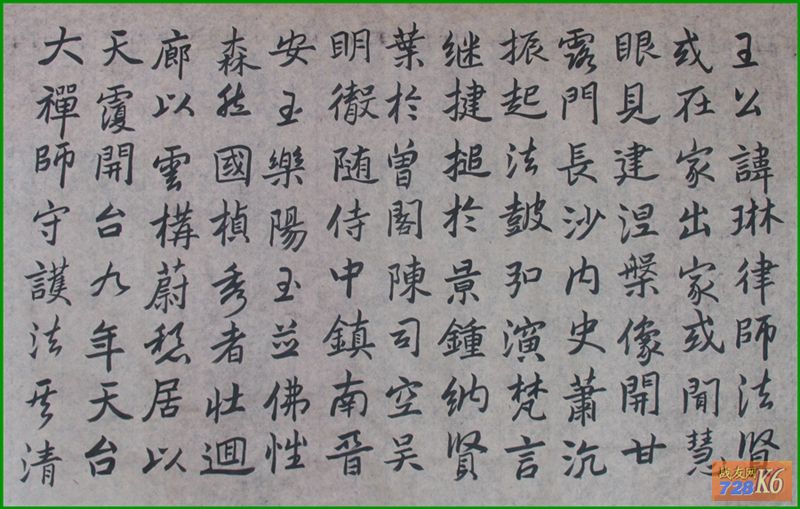 王公諱琳律師法賢
或在家出家或聞慧
眼見建涅槃像開甘
露門長沙內史蕭沉
振起法鼓弘演梵言
继揵搥於景鍾納賢
葉於曾閣陳司空吳
明徹随侍中鎮南晉
安王樂陽王並佛性
森然國楨秀者壮迴
廊以雲構蔚穏居以
天霞開台九年天台
大禪師守護法清
战友网
728K6